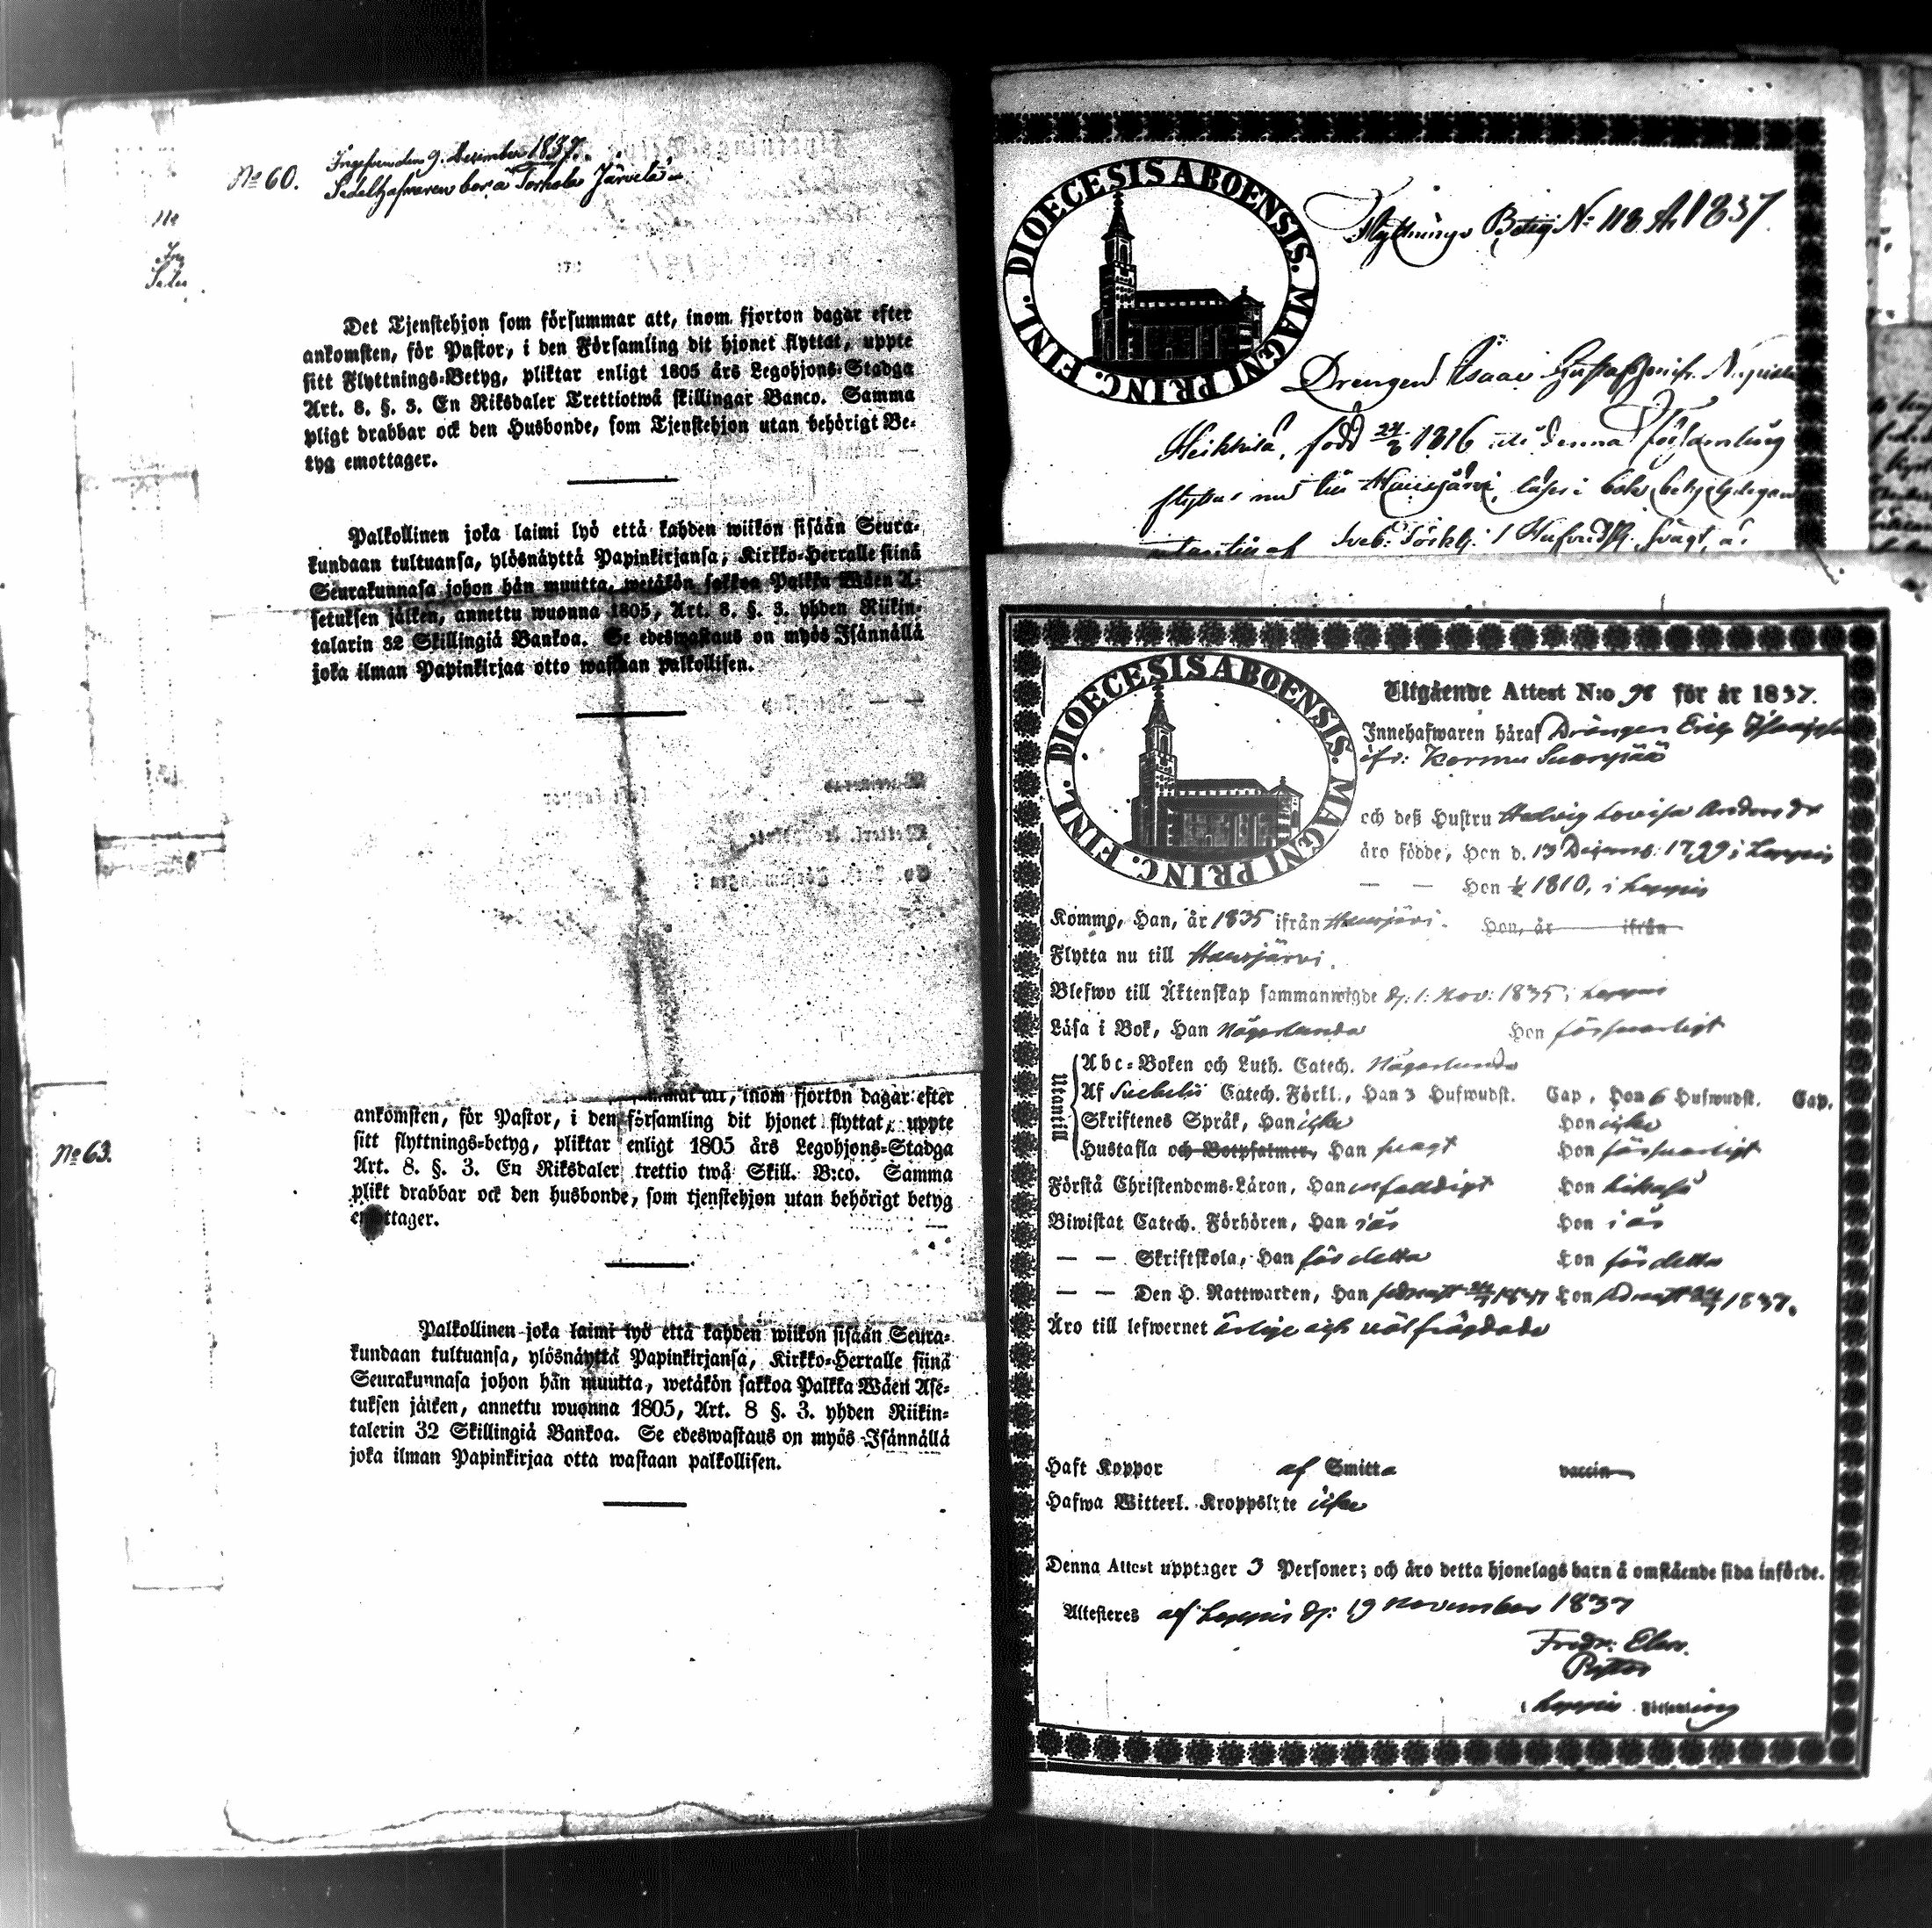 No 60.
Ingifven den 9. December 1837.
Sedelhafvaren bor å Torhola Järvelä
Det Tjenstehjon som försummar att, inom fjorton dagar efter
ankomsten, för Pastor, i den Församling dit hjonet flyttat, uppte
sitt Flyttnings-Betyg, pliktar enligt 1805 års Legohjons-Stadga
Art. 8. §. 3. En Riksdaler Trettiotwå skillingar Banco. Samma
pligt drabbar ock den Husbonde, som Tjenstehjon utan behörigt Be-
tyg emottager.
Palkollinen joka laimi lyö että kahden wiikon sisään Seura-
kundaan tultuansa, ylösnäyttä Papinkirjansa, Kirkko-Herralle siinä
Seurakunnasa johon hän muutta, wetäkön sakkoa Palkka Wäen A-
setuksen jälken, annettu wuonna 1805, Art. 8. §. 3. yhden Riikin-
talarin 32 Skillingiä Bankoa. Se edeswastaus on myös Isännällä
joka ilman Papinkirjaa otto wastaan palkollisen.
att, inom fjorton dagar efter
ankomsten, för Pastor, i den församling dit hjonet flyttat, uppte
sitt flyttnings-betyg, pliktar enligt 1805 års Legohjons-Stadga
Art. 8. §. 3. En Riksdaler trettio twå Skill. B:co. Samma
plikt drabbar ock den husbonde, som tjenstehjon utan behörigt betyg
emottager.
No 63.
Palkollinen joka laimi lyö että kahden wiikon sisään Seura-
kundaan tultuansa, ylösnäyttä Papinkirjansa, Kirkko-Herralle siinä
Seurakunnasa johon hän muutta, wetäkön sakkoa Palkka Wäen Ase-
tuksen jälken, annettu wuonna 1805, Art. 8 §. 3. yhden Riikin-
talerin 32 Skillingiä Bankoa. Se edeswastaus on myös Isännällä
joka ilman Papinkirjaa otta wastaan palkollisen.
DIOECESIS ABOENSIS. MAGNI PRINC. FINL.
Flyttnings Betyg No 118 A 1837
Drengen Isaac Gustafsson ifr.
Heikkilä, född 24/6 1816 i denna Församling
flyttar nu till Hausjärvi, läser i bok
DIOECESIS ABOENSIS. MAGNI PRINC. FINL.
Utgående Attest N:o 98 för år 1837.
Innehafwaren häraf Drängen Eric
ifr: Kormu Suonpää
och deß Hustru Hedvig Lovisa Anders dr
äro födde, Han d. 13 Decemb: 1799 i Loppis
— — Hon 1810, i Loppis
Kommo, Han, år 1835 ifrån Hausjärvi. Hon, år ifrån
Flytta nu till Hausjärvi.
Blefwo till Äktenskap sammanwigde d: 1. Nov: 1835 i Loppis
Läsa i Bok, Han någorlunda Hon försvarligt
Utantill
Abc-Boken och Luth. Catech. någorlunda
Af Svebelii Catech. Förkl., Han 3 Hufwudst. Cap, Hon 6 Hufwudst. Cap.
Skriftenes Språk, Han icke Hon icke
Hustafla och Botpsalmer, Han svagt Hon försvarligt
Förstå Christendoms-Läran, Han enfaldigt Hon likaså
Biwistat Catech. Förhören, Han i år Hon i år
— — Skriftskola, Han för detta Hon för detta
— — Den H. Nattwarden, Han sednast 1837 Hon sednast 1837.
Äro till lefwernet ärlige och välfrägdade
Haft Koppor af Smitta vaccin
Hafwa Witterl. Kroppslyte icke
Denna Attest upptager 3 Personer; och äro detta hjonelags barn å omstående sida införde.
Attesteres af Loppis d: 19 November 1837
Fredr:
Pastor
i Loppis Församling